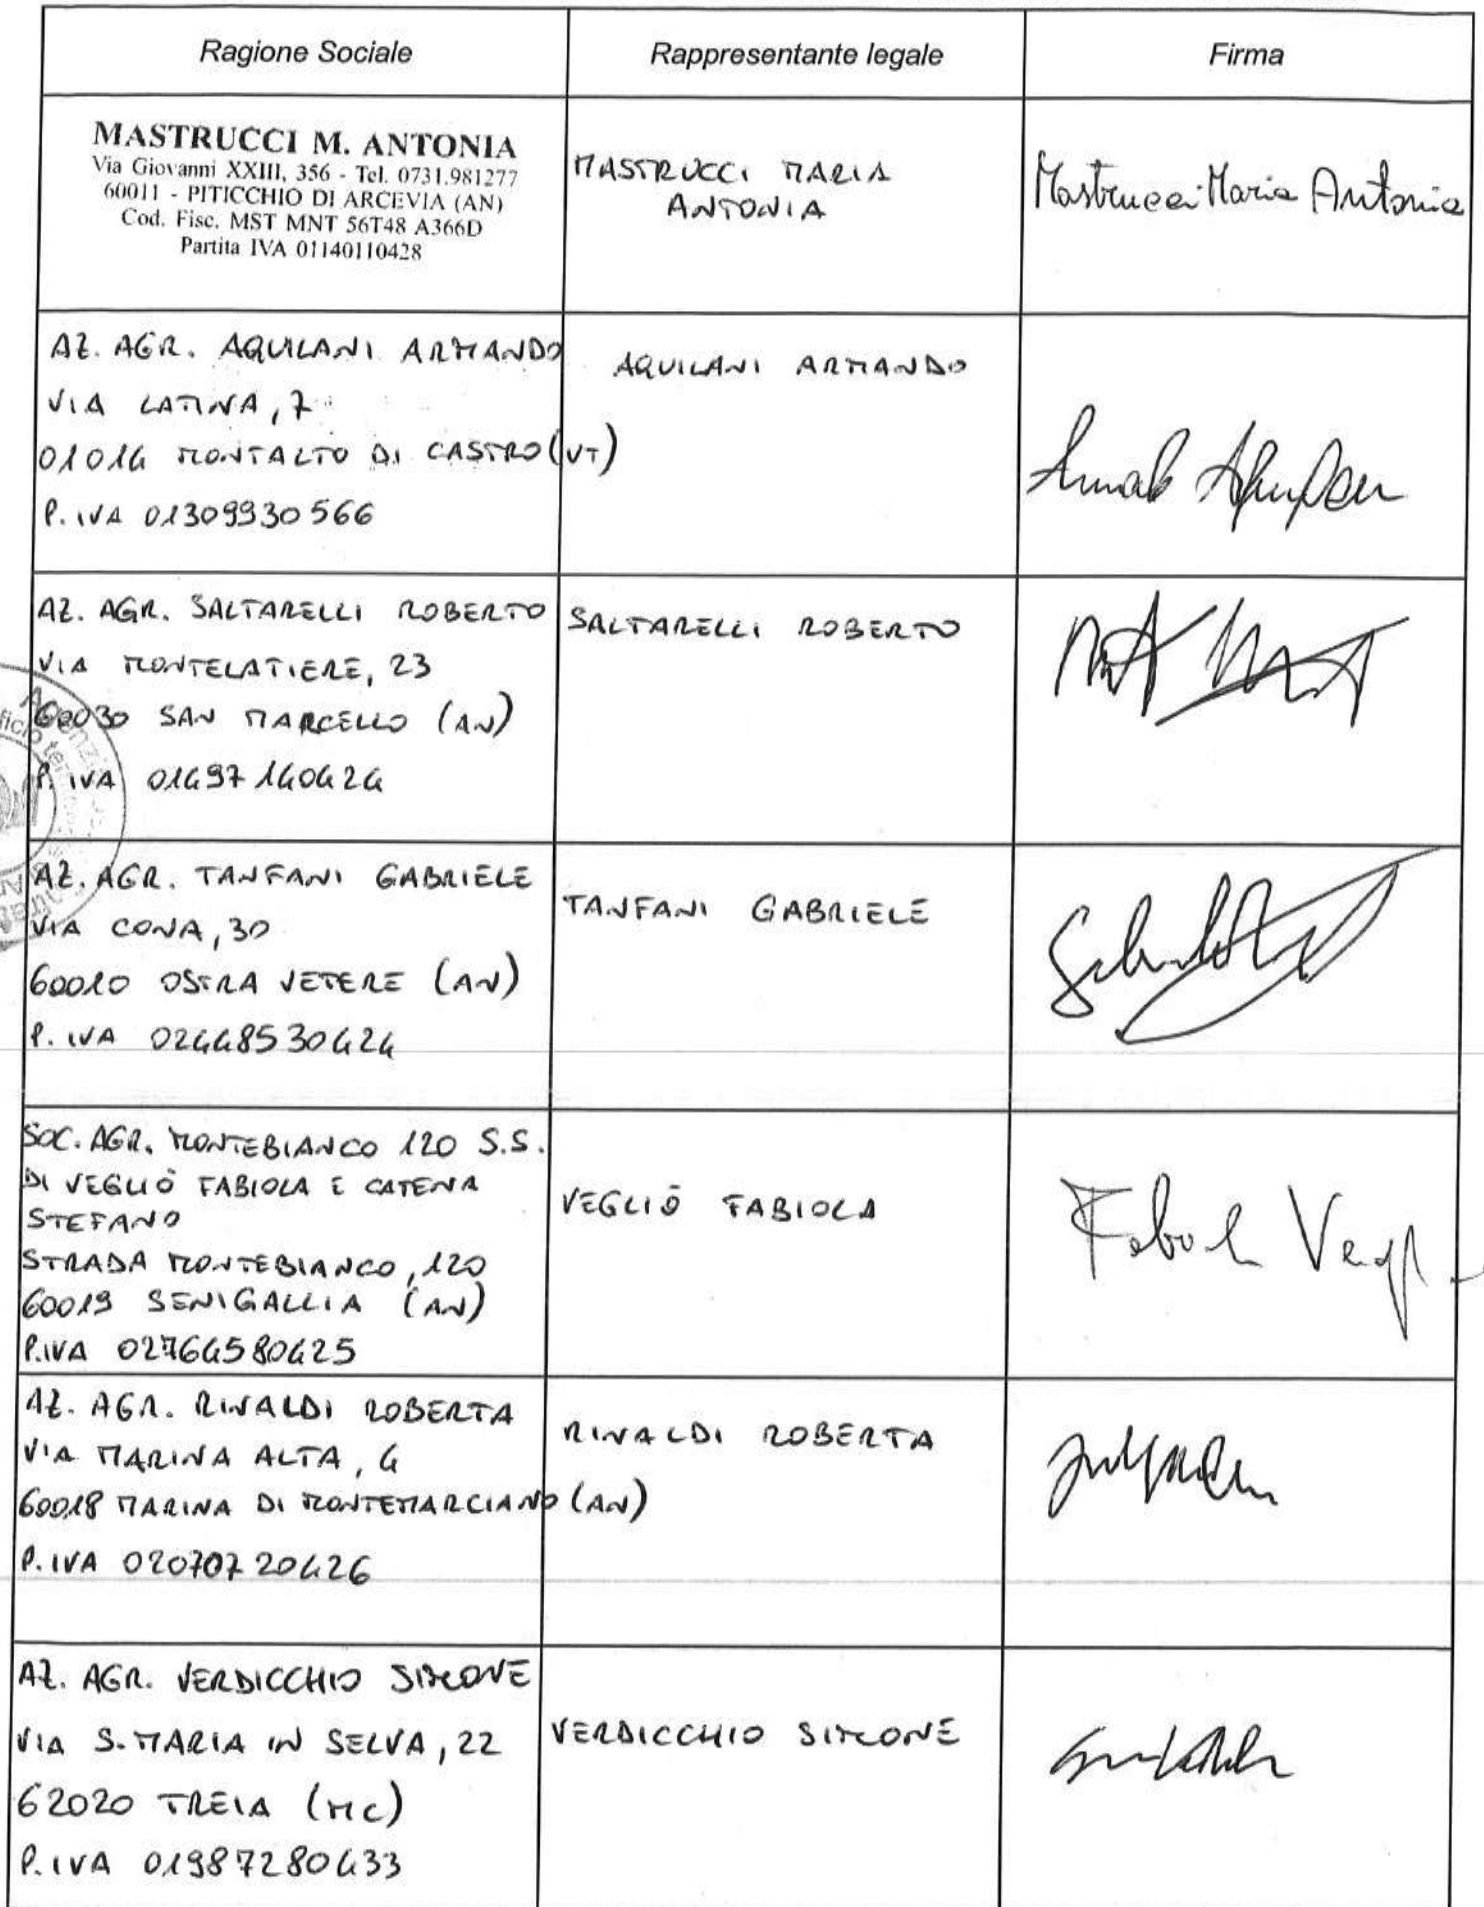 Ragione Sociale
Rappresentante legale
Firma
MASTRUCCI M. ANTONIA
Via Giovanni XXIII, 356 - Tel. 0731.981277
60011 - PITICCHIO DI ARCEVIA (AN)
Cod. Fisc. MST MNT 56T48 A366D
Partita IVA 01140110428
MASTRUCCI MARIA
ANTONIA
Mastrucci Maria Antonia
AZ. AGR. AQUILANI ARMANDO
VIA LATINA, 7
01014 MONTALTO DI CASTRO (VT)
P. IVA 01309930566
AQUILANI ARMANDO
AZ. AGR. SALTARELLI ROBERTO
VIA MONTELATIERE, 23
60030 SAN MARCELLO (AN)
P. IVA 01497140424
SALTARELLI ROBERTO
AZ. AGR. TANFANI GABRIELE
VIA CONA, 30
60010 OSTRA VETERE (AN)
P. IVA 02448530424
TANFANI GABRIELE
SOC. AGR. MONTEBIANCO 120 S.S.
DI VEGLIÒ FABIOLA E CATENA
STEFANO
STRADA MONTEBIANCO, 120
60019 SENIGALLIA (AN)
P.IVA 02764580425
VEGLIÒ FABIOLA
AZ. AGR. RINALDI ROBERTA
VIA MARINA ALTA, 4
60018 MARINA DI MONTEMARCIANO (AN)
P. IVA 02070720426
RINALDI ROBERTA
AZ. AGR. VERDICCHIO SIMONE
VIA S. MARIA IN SELVA, 22
62020 TREIA (MC)
P. IVA 01987280433
VERDICCHIO SIMONE